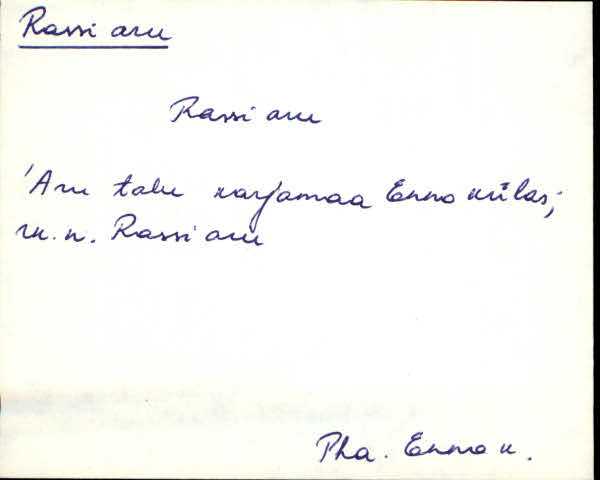 Rassi aru
Rassi aru
'Aru talu karjamaa Enno külas;
m. n. Rassi aru
Pha. Enno k.